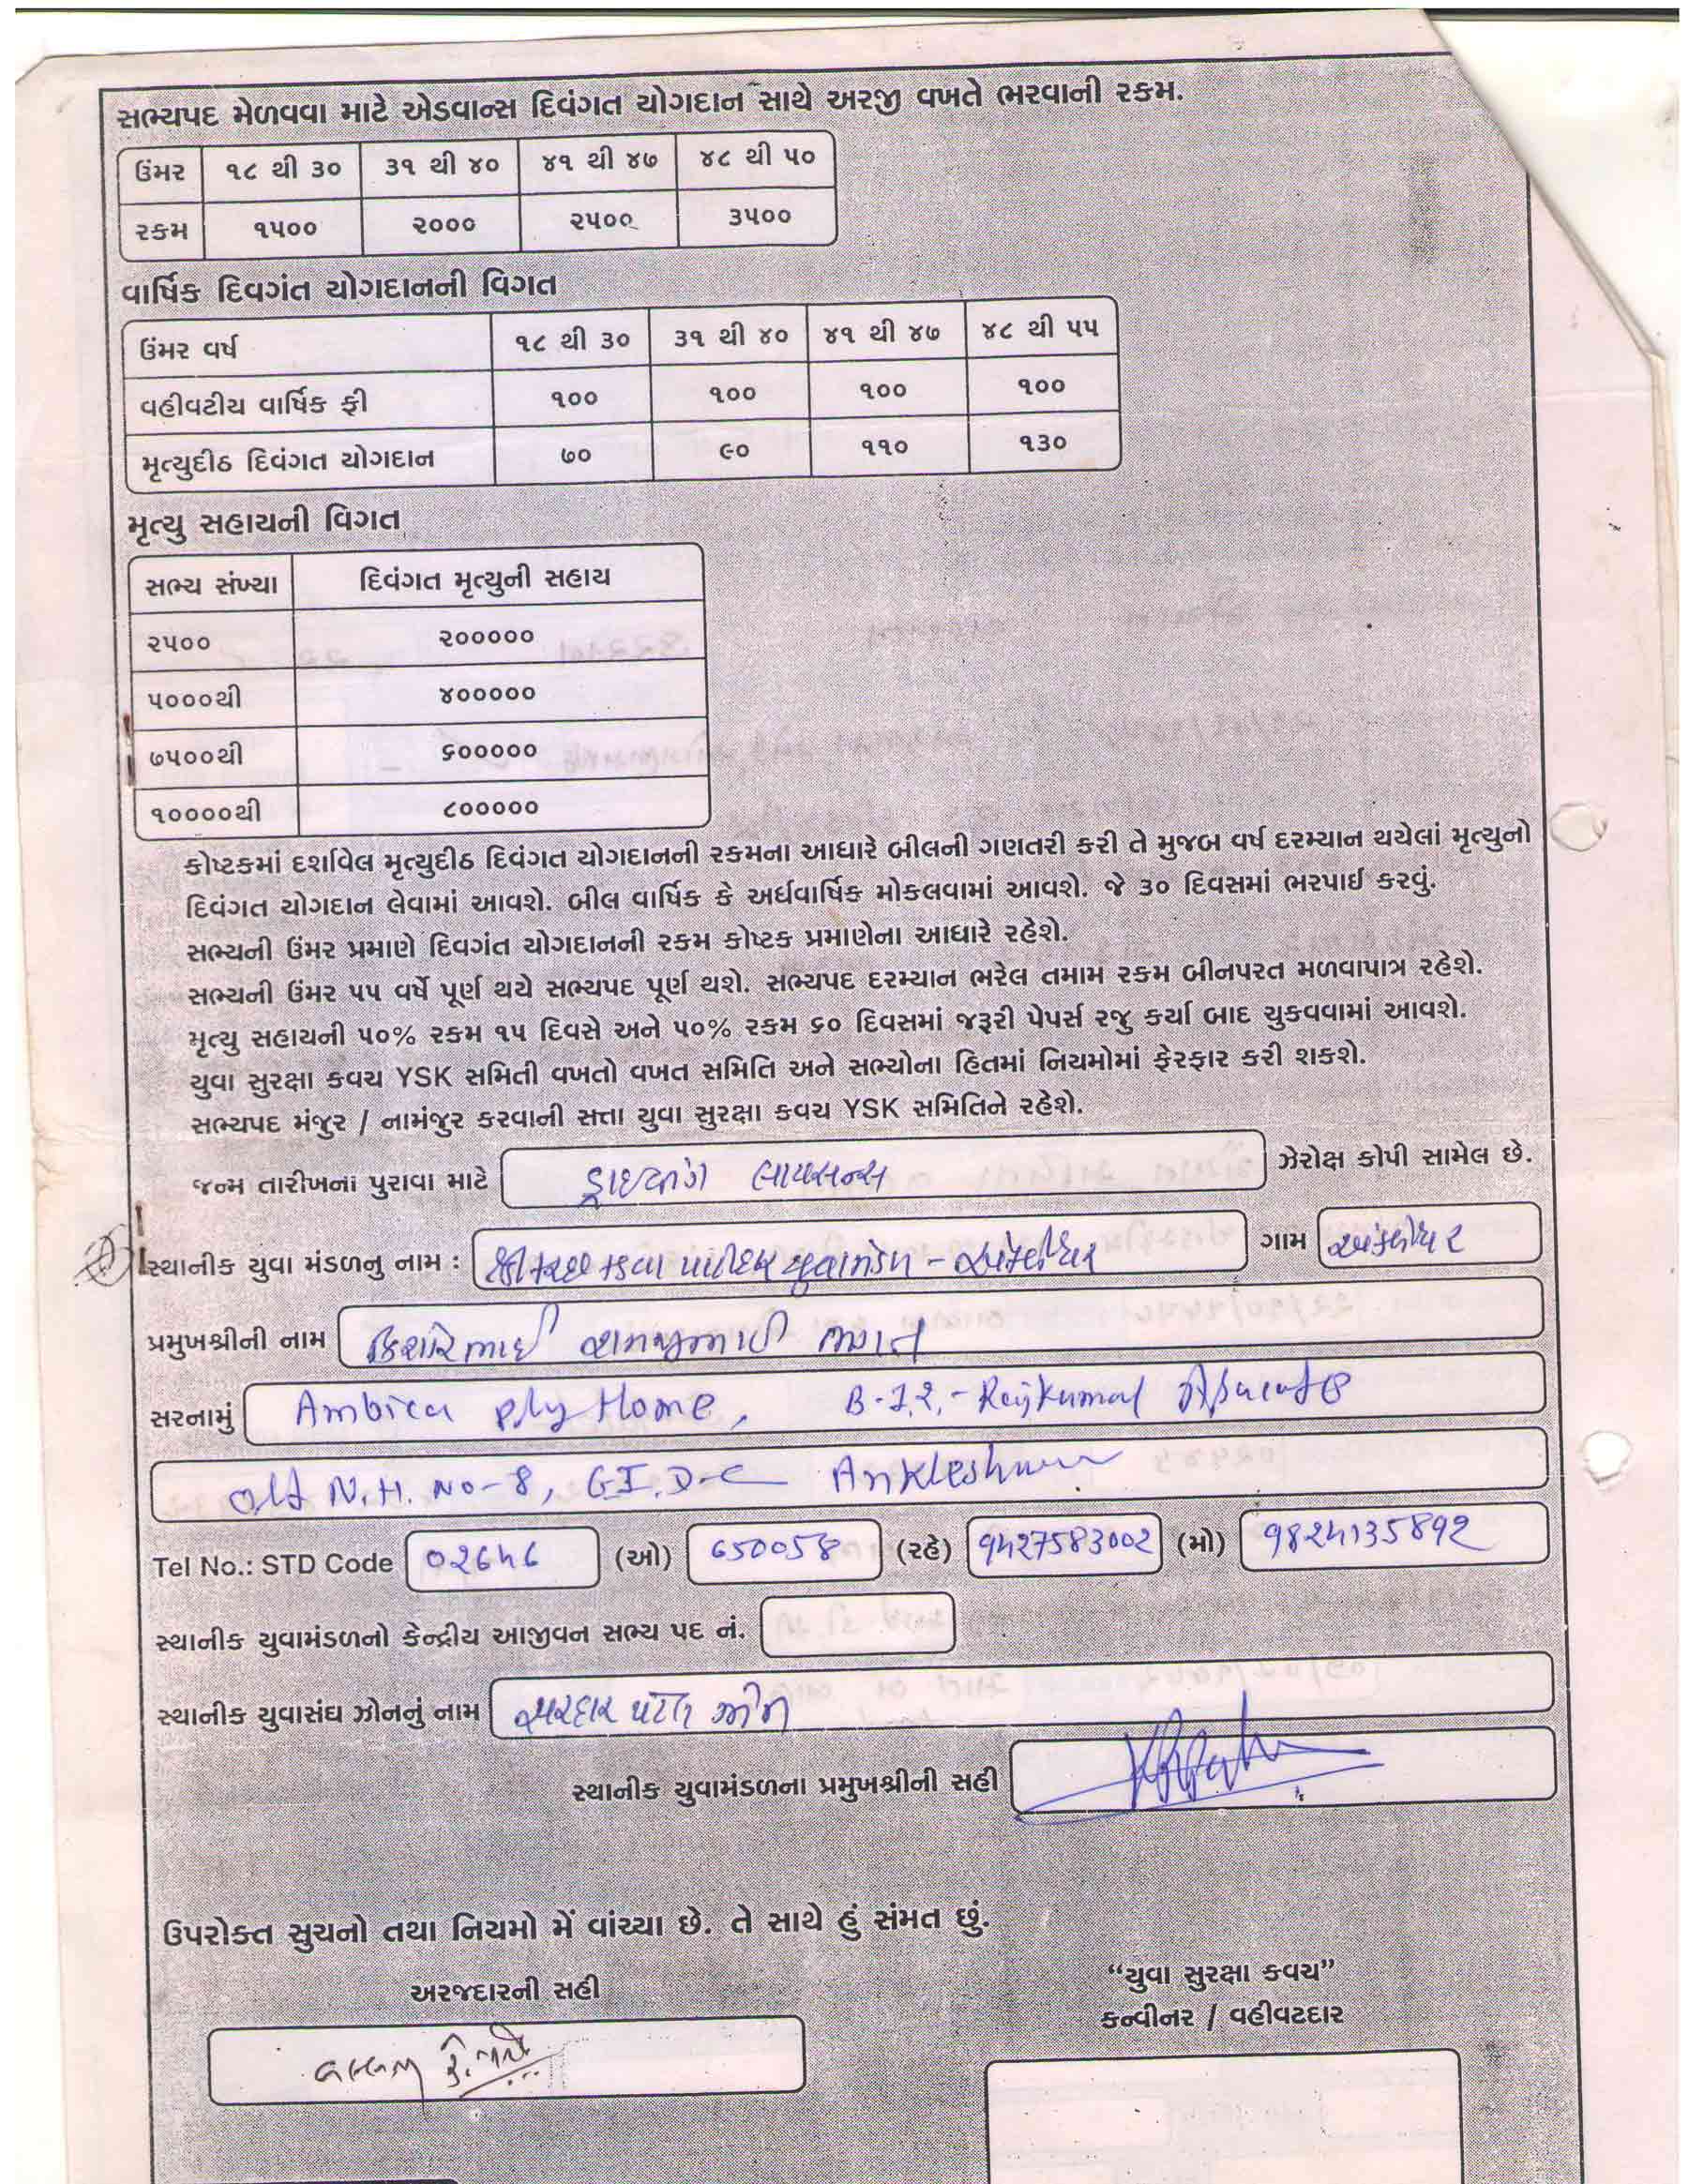 સભ્યપદ મેળવવા માટે એડવાન્સ દિવંગત યોગદાન સાથે અરજી વખતે ભરવાની રકમ.
ઉંમર ૧૮ થી ૩૦ ૩૧ થી ૪૦ ૪૧ થી ૪૭ ૪૮ થી ૫૦
રકમ ૧૫૦૦ ૨૦૦૦ ૨૫૦૦ ૩૫૦૦
વાર્ષિક દિવગંત યોગદાનની વિગત
ઉંમર વર્ષ ૧૮ થી ૩૦ ૩૧ થી ૪૦ ૪૧ થી ૪૭ ૪૮ થી ૫૫
વહીવટીય વાર્ષિક ફી ૧૦૦ ૧૦૦ ૧૦૦ ૧૦૦
મૃત્યુદીઠ દિવંગત યોગદાન ૭૦ ૯૦ ૧૧૦ ૧૩૦
મૃત્યુ સહાયની વિગત
સભ્ય સંખ્યા દિવંગત મૃત્યુની સહાય
૨૫૦૦ ૨૦૦૦૦૦
૫૦૦૦થી ૪૦૦૦૦૦
૭૫૦૦થી ૬૦૦૦૦૦
૧૦૦૦૦થી ૮૦૦૦૦૦
કોષ્ટકમાં દર્શાવેલ મૃત્યુદીઠ દિવંગત યોગદાનની રકમના આધારે બીલની ગણતરી કરી તે મુજબ વર્ષ દરમ્યાન થયેલાં મૃત્યુનો
દિવંગત યોગદાન લેવામાં આવશે. બીલ વાર્ષિક કે અર્ધવાર્ષિક મોકલવામાં આવશે. જે ૩૦ દિવસમાં ભરપાઈ કરવું.
સભ્યની ઉંમર પ્રમાણે દિવગંત યોગદાનની રકમ કોષ્ટક પ્રમાણેના આધારે રહેશે.
સભ્યની ઉંમર ૫૫ વર્ષે પૂર્ણ થયે સભ્યપદ પૂર્ણ થશે. સભ્યપદ દરમ્યાન ભરેલ તમામ રકમ બીનપરત મળવાપાત્ર રહેશે.
મૃત્યુ સહાયની ૫૦% રકમ ૧૫ દિવસે અને ૫૦% રકમ ૬૦ દિવસમાં જરૂરી પેપર્સ રજુ કર્યા બાદ ચુકવવામાં આવશે.
યુવા સુરક્ષા કવચ YSK સમિતી વખતો વખત સમિતિ અને સભ્યોના હિતમાં નિયમોમાં ફેરફાર કરી શકશે.
સભ્યપદ મંજુર / નામંજુર કરવાની સત્તા યુવા સુરક્ષા કવચ YSK સમિતિને રહેશે.
જન્મ તારીખના પુરાવા માટે ડ્રાઇવીંગ લાયસન્સ ઝેરોક્ષ કોપી સામેલ છે.
સ્થાનીક યુવા મંડળનુ નામ : કડવા પાટીદાર યુવામંડળ - અંકલેશ્વર ગામ અંકલેશ્વર
પ્રમુખશ્રીની નામ કિશોરભાઈ ભગત
સરનામું Ambica ply Home, Rajkumar
old N.H. No-8, G.I.D.C Ankleshwar
Tel No.: STD Code 02646 (ઓ) 650058 (રહે) 9427583002 (મો) 9824135892
સ્થાનીક યુવામંડળનો કેન્દ્રીય આજીવન સભ્ય પદ નં.
સ્થાનીક યુવાસંઘ ઝોનનું નામ સરદાર પટેલ ઝોન
સ્થાનીક યુવામંડળના પ્રમુખશ્રીની સહી
ઉપરોક્ત સુચનો તથા નિયમો મેં વાંચ્યા છે. તે સાથે હું સંમત છું.
અરજદારની સહી
“યુવા સુરક્ષા કવચ”
કન્વીનર / વહીવટદાર